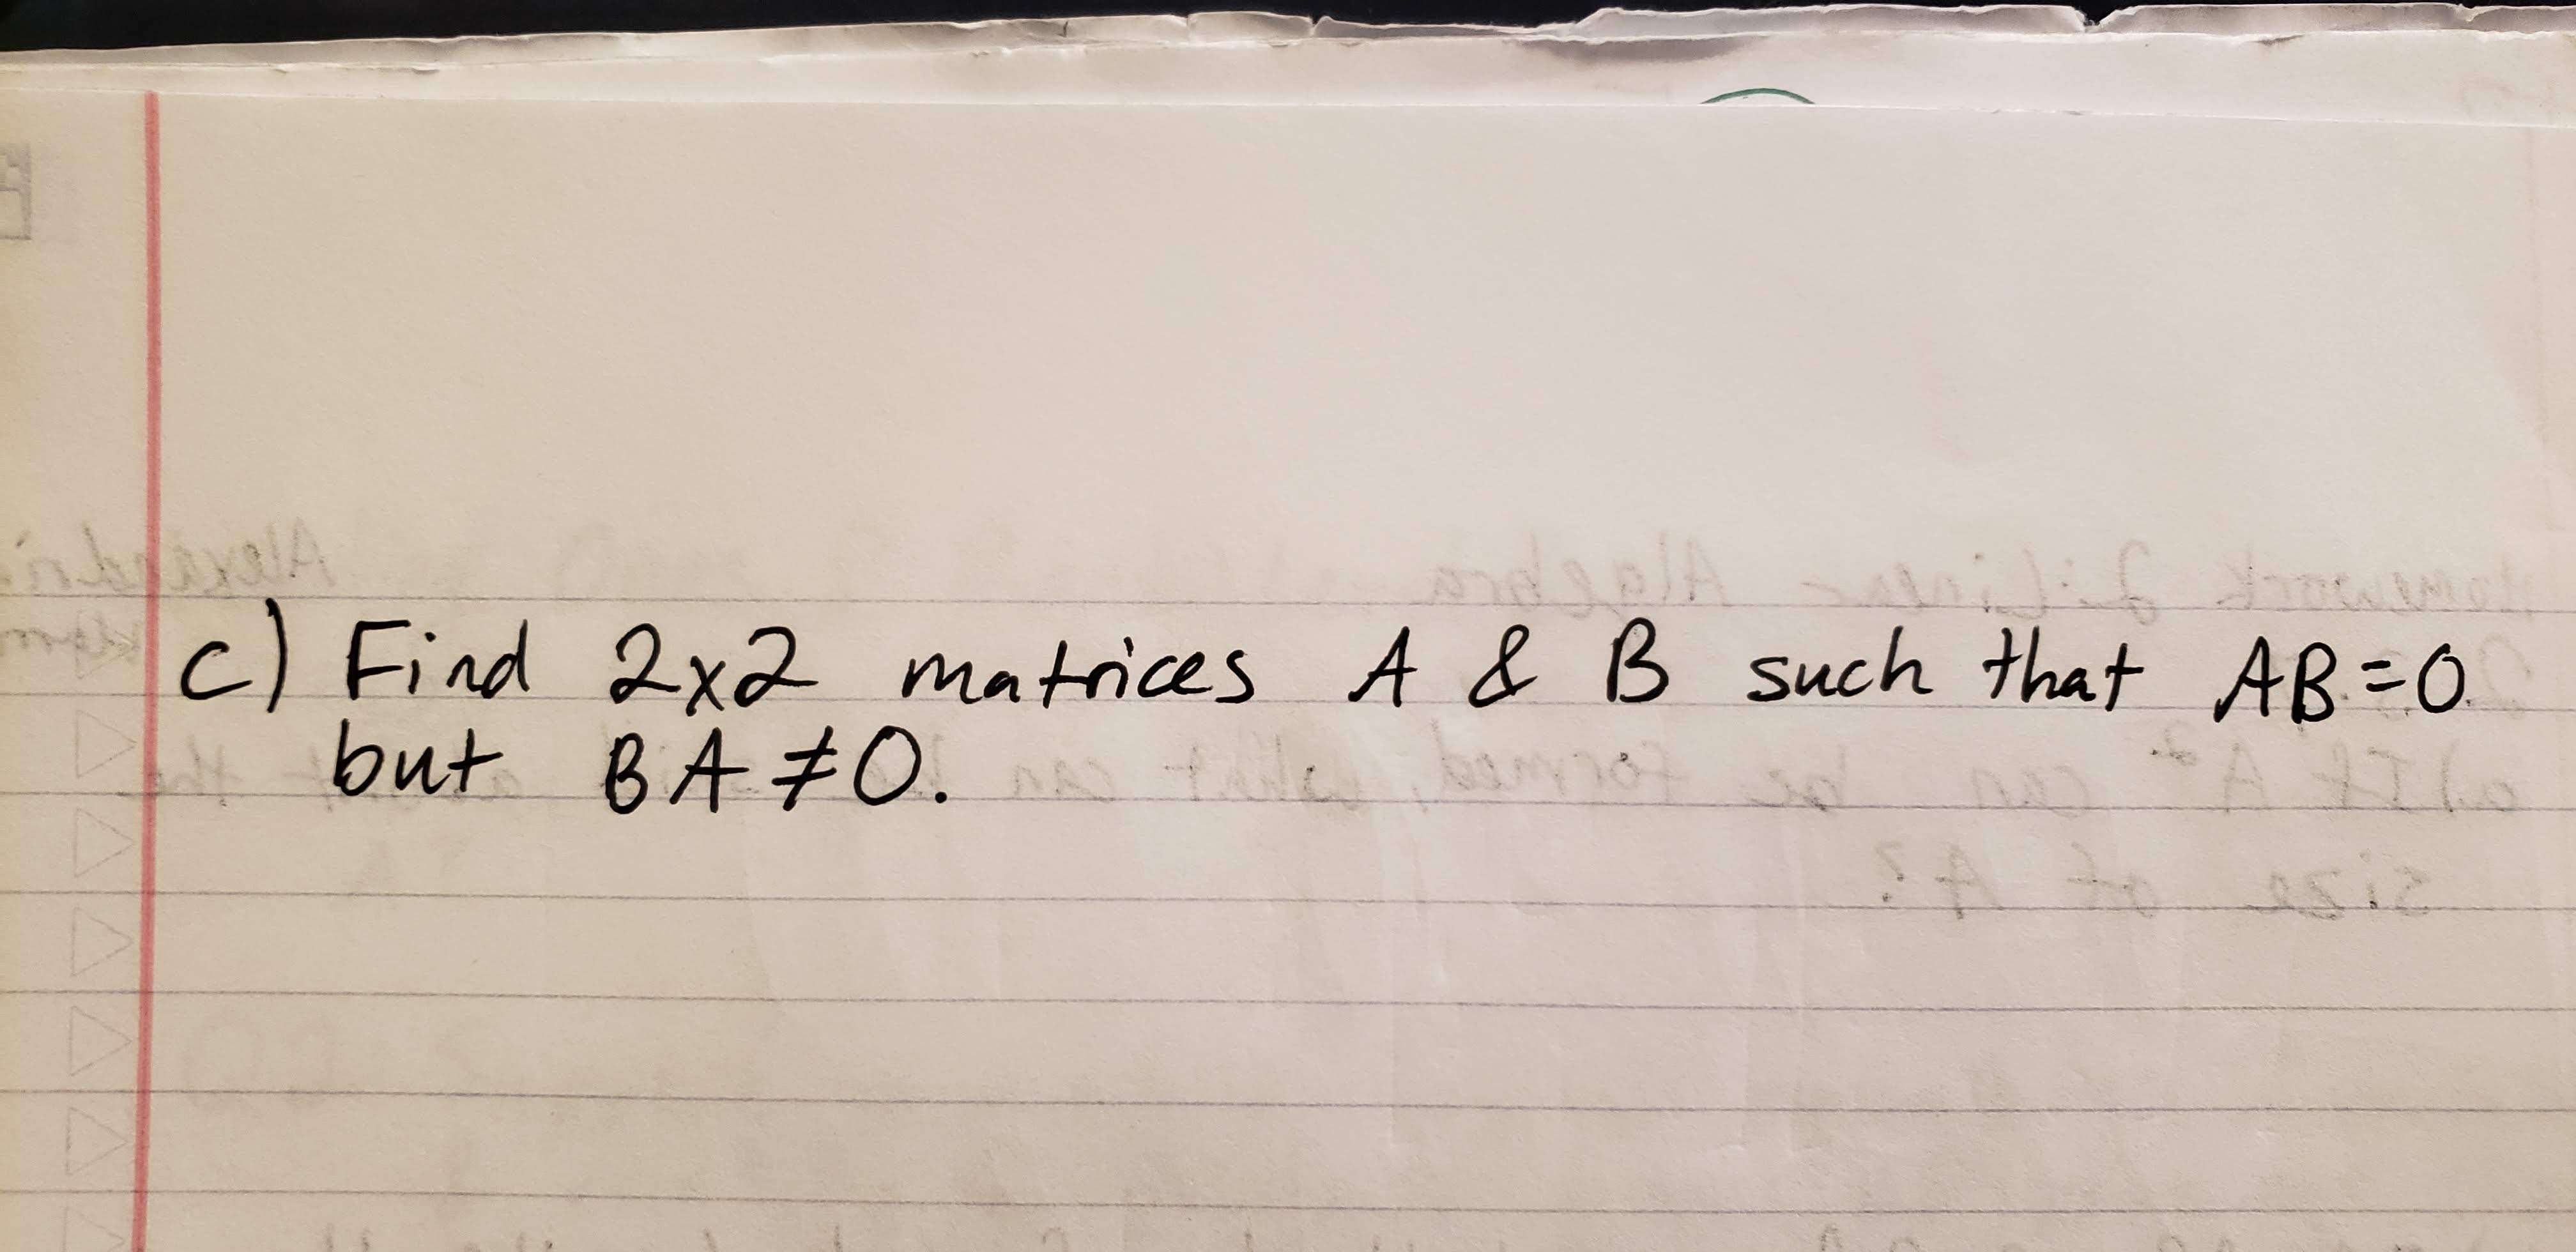 c) Find 2x2 matrices A & B such that AB=0
but BA≠0.